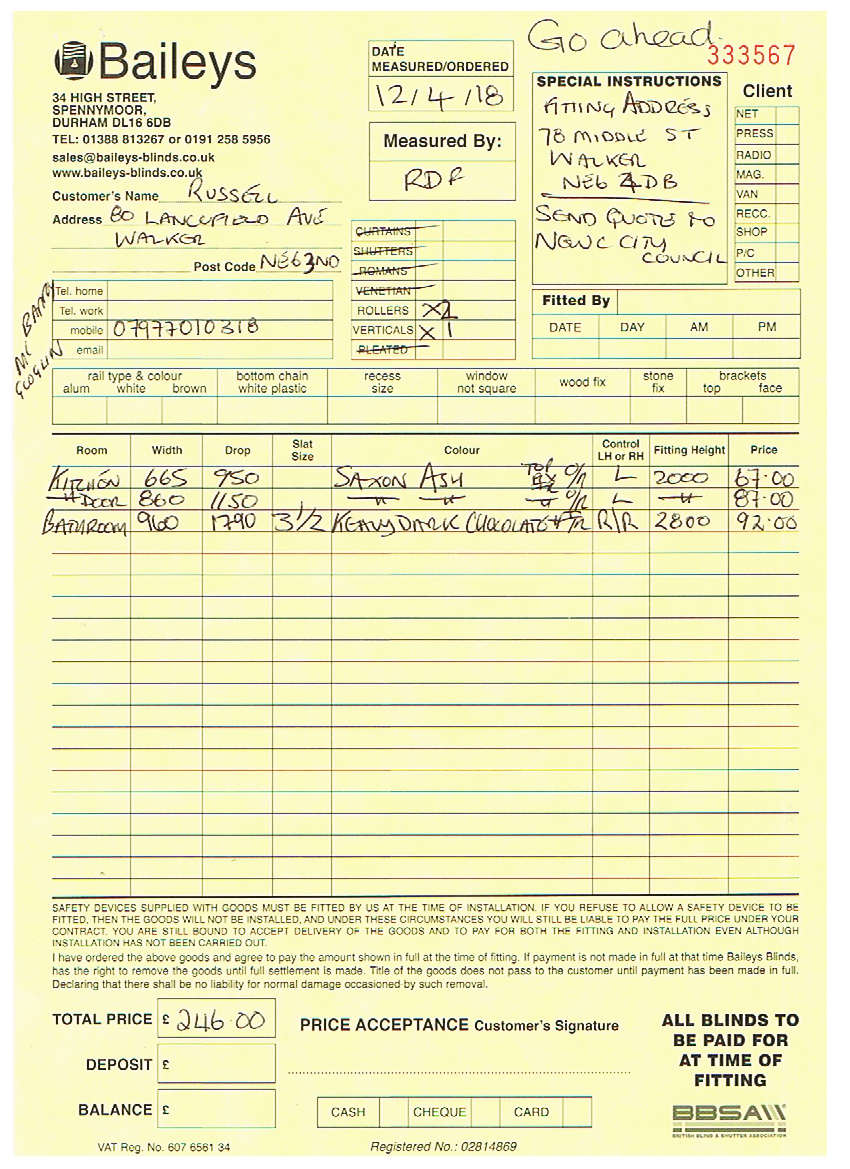 Go ahead
333567
Baileys
34 HIGH STREET,
SPENNYMOOR,
DURHAM DL16 6DB
TEL: 01388 813267 or 0191 258 5956
sales@baileys-blinds.co.uk
www.baileys-blinds.co.uk
Customer's Name RUSSELL
Address 80 LANCEFIELD AVE
WALKER
Post Code NE63ND
DATE
MEASURED/ORDERED
12/4/18
Measured By:
RDF
SPECIAL INSTRUCTIONS
FITTING ADDRESS
78 MIDDLE ST
WALKER
NE6 4DB
SEND QUOTE to
NEWC CITY
COUNCIL
Client
NET
PRESS
RADIO
MAG.
VAN
RECC.
SHOP
P/C
OTHER
Tel. home
Tel. work
mobile 07977010318
email
CURTAINS
SHUTTERS
ROMANS
VENETIAN
ROLLERS X2
VERTICALS X 1
PLEATED
Fitted By
DATE DAY AM PM
rail type & colour
alum white brown
bottom chain
white plastic
recess
size
window
not square
wood fix
stone
fix
brackets
top face
Room Width Drop Slat Size Colour Control LH or RH Fitting Height Price
KITCHEN 665 950 SAXON ASH O/R L 2000 67.00
" DOOR 860 1150 " " " O/R L " 87.00
BATHROOM 960 1790 3 1/2 DARK CHOCOLATE R/R 2800 92.00
SAFETY DEVICES SUPPLIED WITH GOODS MUST BE FITTED BY US AT THE TIME OF INSTALLATION. IF YOU REFUSE TO ALLOW A SAFETY DEVICE TO BE
FITTED, THEN THE GOODS WILL NOT BE INSTALLED, AND UNDER THESE CIRCUMSTANCES YOU WILL STILL BE LIABLE TO PAY THE FULL PRICE UNDER YOUR
CONTRACT. YOU ARE STILL BOUND TO ACCEPT DELIVERY OF THE GOODS AND TO PAY FOR BOTH THE FITTING AND INSTALLATION EVEN ALTHOUGH
INSTALLATION HAS NOT BEEN CARRIED OUT.
I have ordered the above goods and agree to pay the amount shown in full at the time of fitting. If payment is not made in full at that time Baileys Blinds,
has the right to remove the goods until full settlement is made. Title of the goods does not pass to the customer until payment has been made in full.
Declaring that there shall be no liability for normal damage occasioned by such removal.
TOTAL PRICE £ 246.00
DEPOSIT £
BALANCE £
PRICE ACCEPTANCE Customer's Signature
CASH CHEQUE CARD
ALL BLINDS TO
BE PAID FOR
AT TIME OF
FITTING
BBSA
BRITISH BLIND & SHUTTER ASSOCIATION
VAT Reg. No. 607 6561 34
Registered No.: 02814869